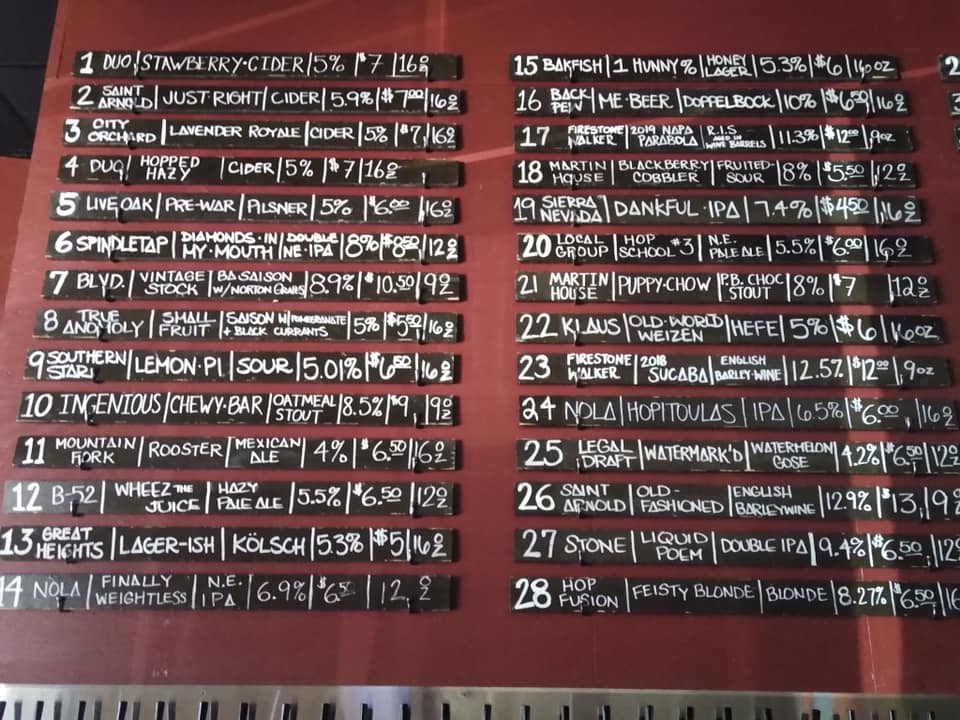 1 DUO STAWBERRY·CIDER 5% $7 16oz
2 SAINT ARNOLD JUST·RIGHT CIDER 5.9% $7.00 16oz
3 CITY ORCHARD LAVENDER ROYALE CIDER 5% $7 16oz
4 DUO HOPPED HAZY CIDER 5% $7 16oz
5 LIVE OAK PRE-WAR PILSNER 5% $6.00 16oz
6 SPINDLETAP DIAMONDS·IN MY·MOUTH DOUBLE NE·IPA 8% $8.50 12oz
7 BLVD. VINTAGE STOCK BA SAISON W/ NORTON GRAPES 8.9% $10.50 9oz
8 TRUE ANOMOLY SMALL FRUIT SAISON W/ POMEGRANATE + BLACK CURRANTS 5% $5.50 16oz
9 SOUTHERN STAR LEMON·PI SOUR 5.01% $6.50 16oz
10 INGENIOUS CHEWY·BAR OATMEAL STOUT 8.5% $9 9oz
11 MOUNTAIN FORK ROOSTER MEXICAN ALE 4% $6.50 16oz
12 B-52 WHEEZ THE JUICE HAZY PALE ALE 5.5% $6.50 12oz
13 GREAT HEIGHTS LAGER-ISH KÖLSCH 5.3% $5 16oz
14 NOLA FINALLY WEIGHTLESS N.E. IPA 6.9% $6.50 12oz
15 BAKFISH 1 HUNNY % HONEY LAGER 5.3% $6 16oz
16 BACK PEW ME·BEER DOPPELBOCK 10% $6.50 16oz
17 FIRESTONE WALKER 2019 NAPA PARABOLA R.I.S. AGED IN WINE BARRELS 11.3% $12.00 9oz
18 MARTIN HOUSE BLACKBERRY COBBLER FRUITED-SOUR 8% $5.50 12oz
19 SIERRA NEVADA DANKFUL·IPA 7.4% $4.50 16oz
20 LOCAL GROUP HOP SCHOOL #3 N.E. PALE ALE 5.5% $6.00 16oz
21 MARTIN HOUSE PUPPY·CHOW P.B. CHOC STOUT 8% $7 12oz
22 KLAUS OLD·WORLD WEIZEN HEFE 5% $6 16oz
23 FIRESTONE WALKER 2018 SUCABA ENGLISH BARLEY·WINE 12.5% $12.00 9oz
24 NOLA HOPITOULAS IPA 6.5% $6.00 16oz
25 LEGAL DRAFT WATERMARK'D WATERMELON GOSE 4.2% $6.50 12oz
26 SAINT ARNOLD OLD-FASHIONED ENGLISH BARLEYWINE 12.9% $13 9
27 STONE LIQUID POEM DOUBLE IPA 9.4% $6.50 12
28 HOP FUSION FEISTY BLONDE BLONDE 8.27% $6.50 16